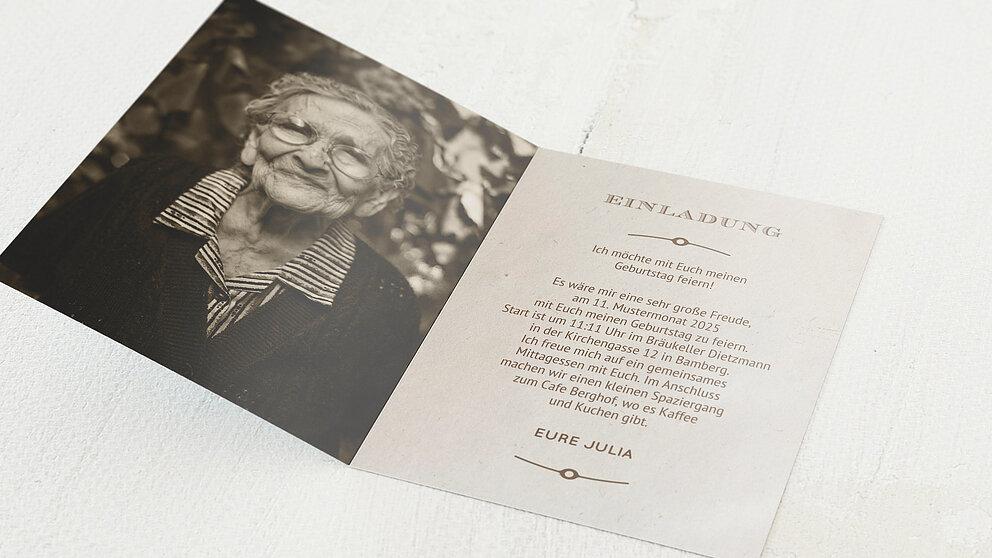 EINLADUNG
Ich möchte mit Euch meinen
Geburtstag feiern!
Es wäre mir eine sehr große Freude,
am 11. Mustermonat 2025
mit Euch meinen Geburtstag zu feiern.
Start ist um 11:11 Uhr im Bräukeller Dietzmann
in der Kirchengasse 12 in Bamberg.
Ich freue mich auf ein gemeinsames
Mittagessen mit Euch. Im Anschluss
machen wir einen kleinen Spaziergang
zum Cafe Berghof, wo es Kaffee
und Kuchen gibt.
EURE JULIA